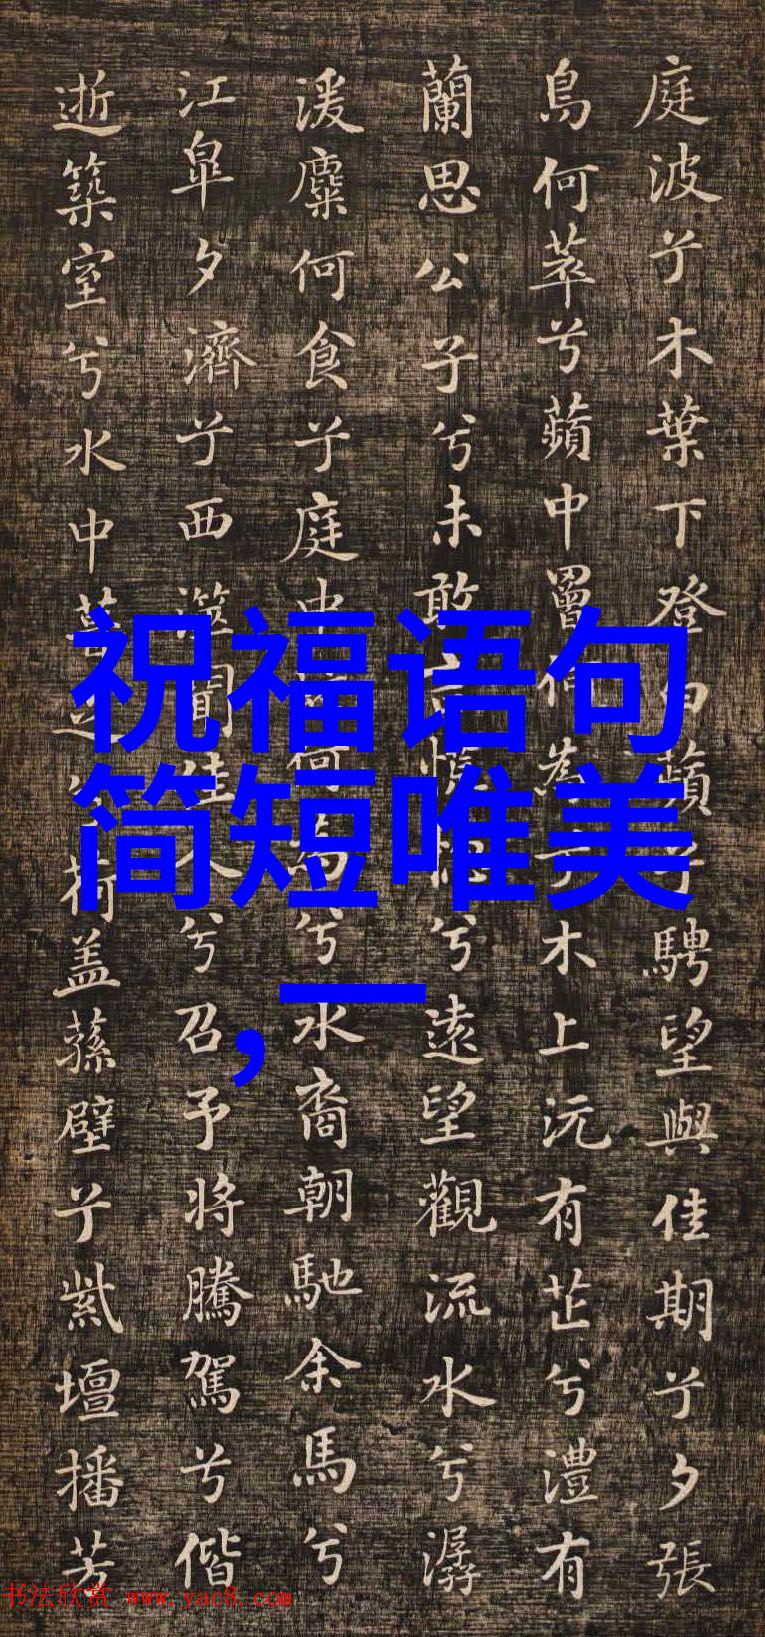 庭波兮木葉下登白蘋兮騁望與佳期兮夕張
鳥何萃兮蘋中罾何為兮木上沅有芷兮澧有
蘭思公子兮未敢言慌惚兮遠望觀流水兮潺
湲麋何食兮庭中何為兮水裔朝馳余馬兮
江皐夕濟兮西澨聞佳人兮召予將騰駕兮偕
逝築室兮水中葺之兮荷盖蓀壁兮紫壇播芳
祝福语句
简短唯美
,一
书法欣赏 www.yac8.com